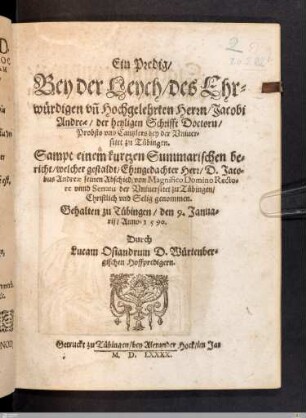 Ein Predig/
Bey der Leych/des Ehr-
würdigen vñ Hochgelehrten Herrn/Jacobi
Andreæ/ der heyligen Schrifft Doctorn/
Probsts vnd Cantzlers bey der Vniuer-
sitet zu Tübingen.
Sampt einem kurtzen Summarischen be-
richt/welcher gestaldt/Ehrngedachter Herr/ D. Jaco-
bus Andreæ seinen Abschied/von Magnifico Domino Recto-
re vnnd Senatu der Vniuersitet zu Tübingen/
Christlich vnd Selig genommen.
Gehalten zu Tübingen/ den 9. Janua-
rij/ Anno 1590.
Durch
Lucam Osiandrum D. Würtenber-
gischen Hoffpredigern.
Getruckt zu Tübingen/bey Alexander Hock/im Jar
M. D. LXXXX.